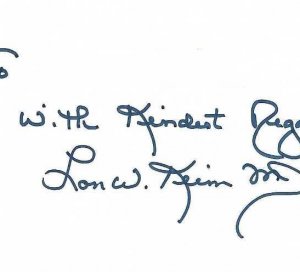 With Kindest Rega
Lon W. Keim MD